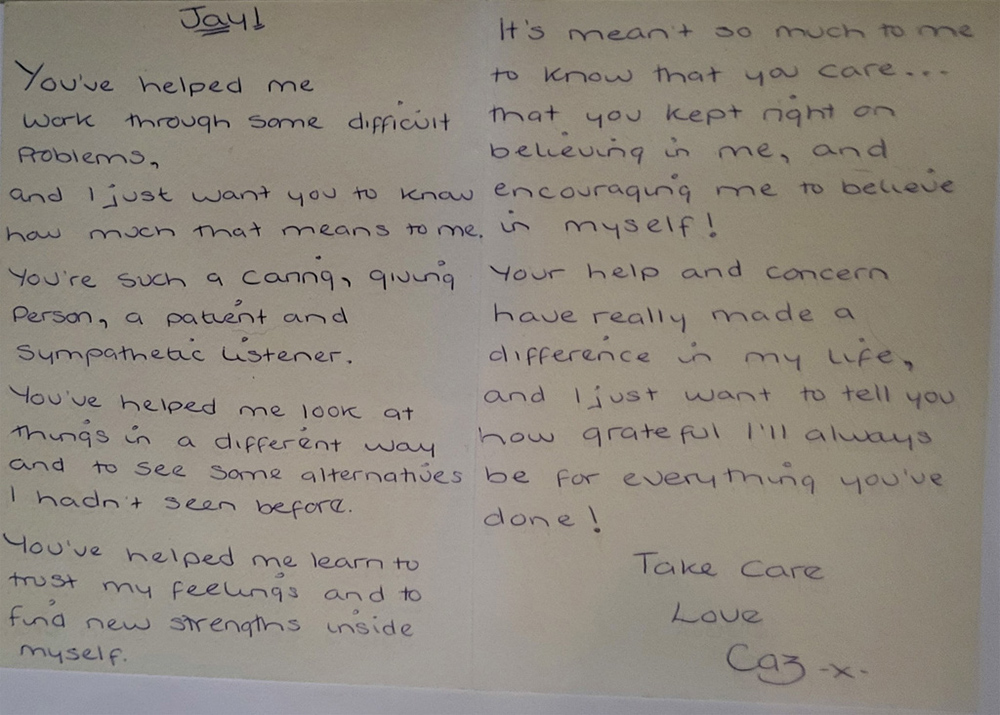 Jay!
You've helped me
work through some difficult
problems,
and I just want you to know
how much that means to me.
You're such a caring, giving
person, a patient and
sympathetic listener.
You've helped me look at
things in a different way
and to see some alternatives
I hadn't seen before.
You've helped me learn to
trust my feelings and to
find new strengths inside
myself.
It's mean't so much to me
to know that you care...
that you kept right on
believing in me, and
encouraging me to believe
in myself!
Your help and concern
have really made a
difference in my life,
and I just want to tell you
how grateful I'll always
be for everything you've
done!
Take Care
Love
Caz -x-